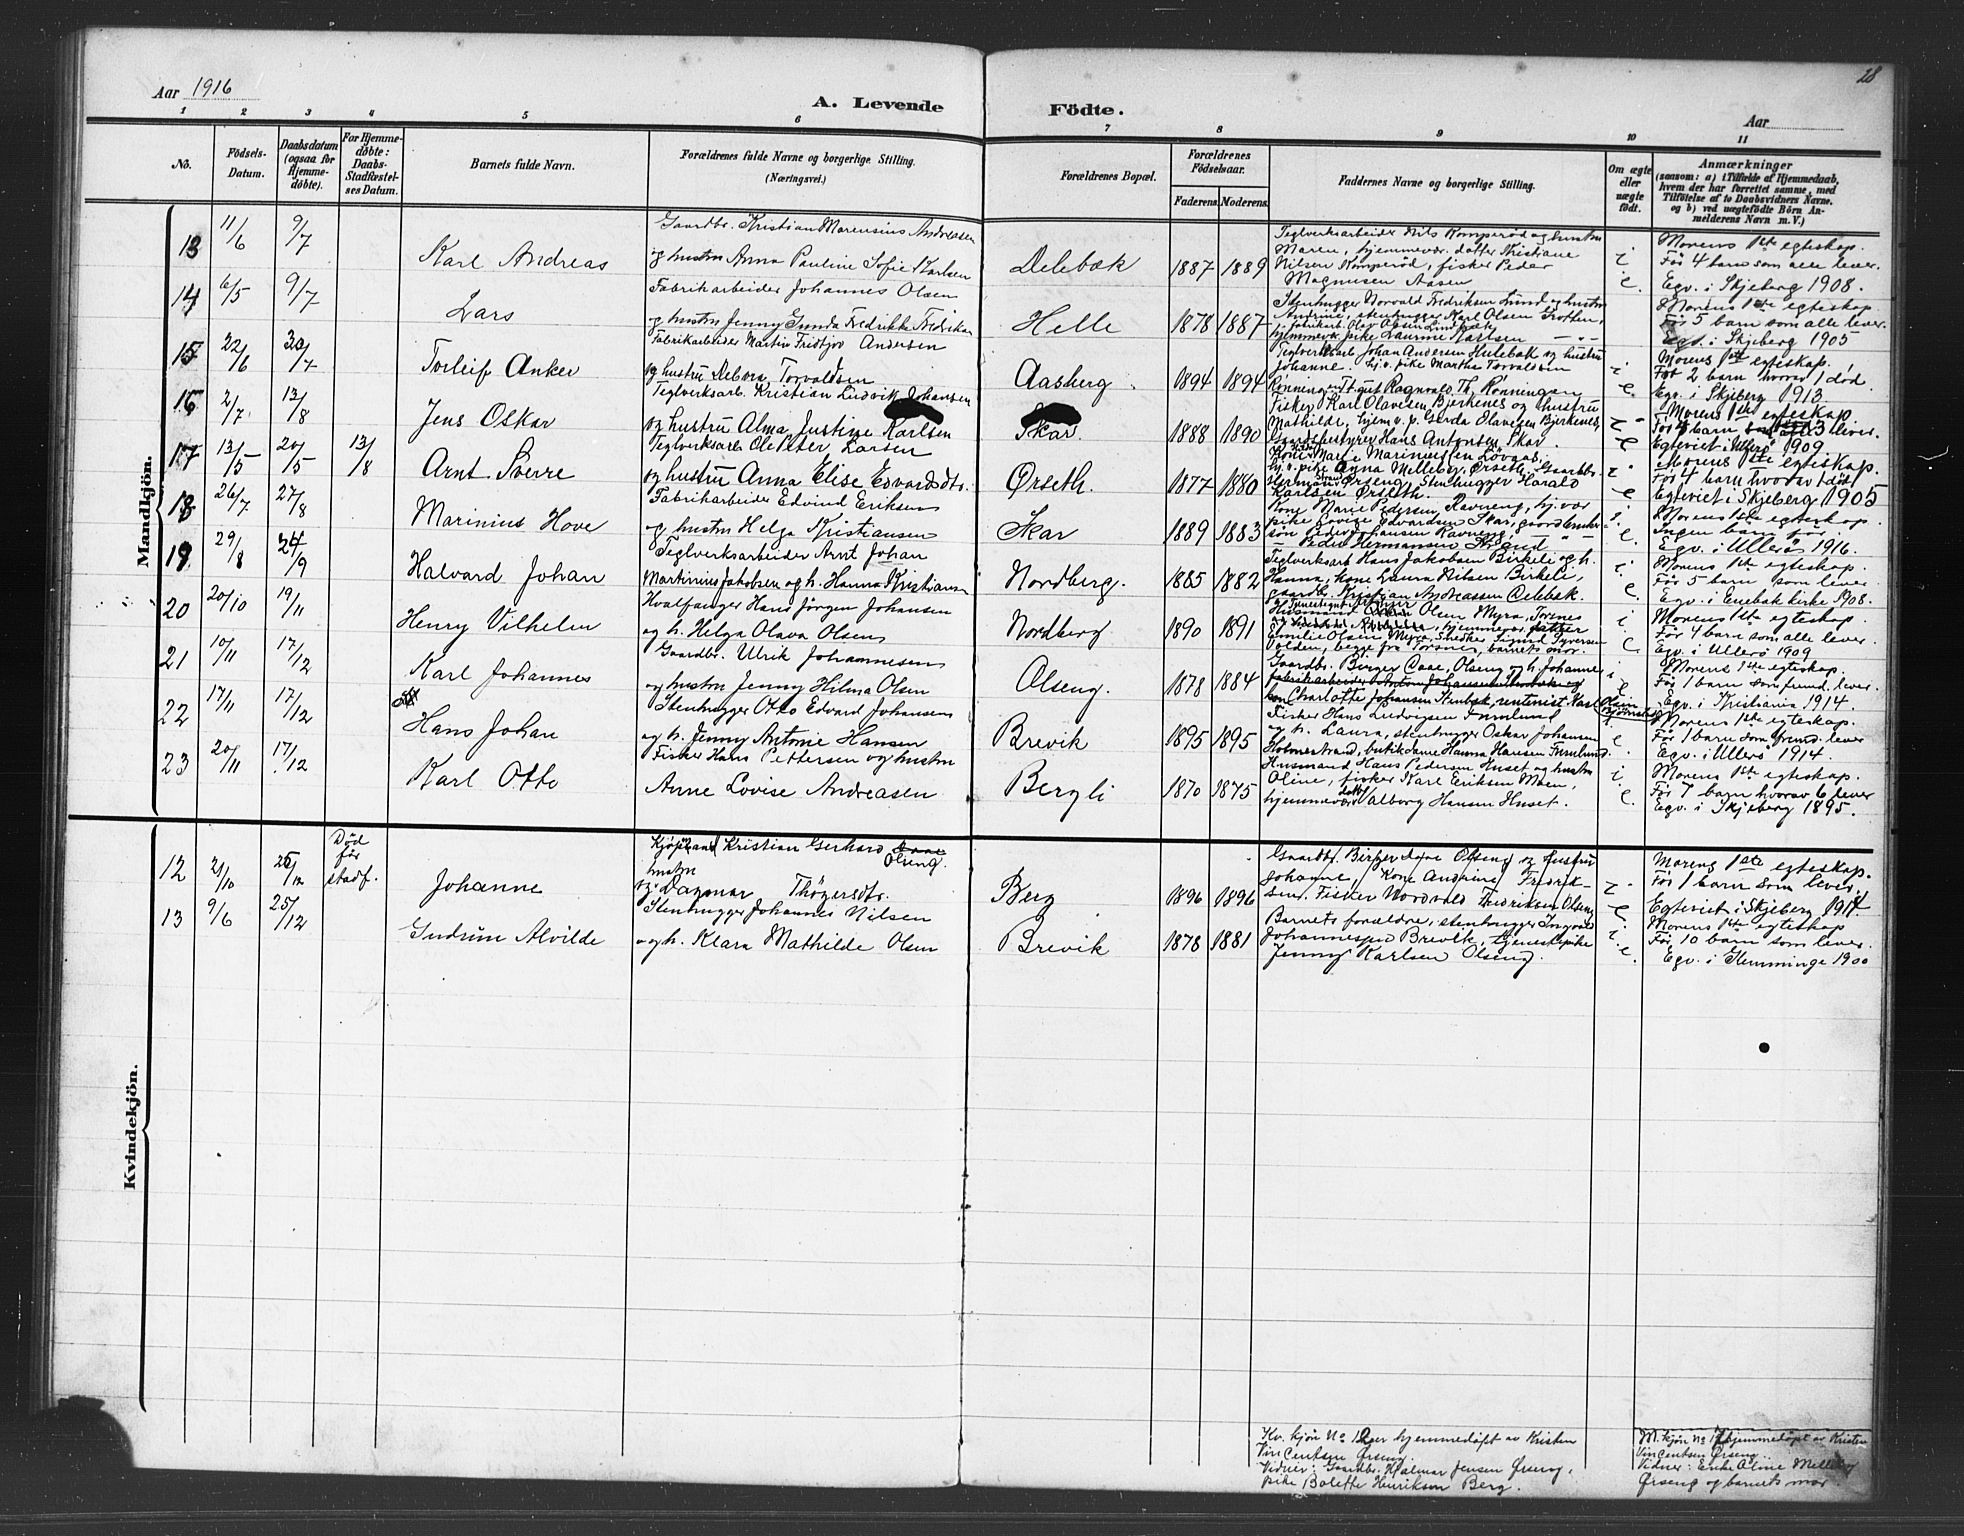 28
Aar 1916
A. Levende Födte.
Aar
1 2 3 4 5 6 7 8 9 10 11
No.
Födsels-
Datum.
Daabsdatum
(ogsaa for
Hjemme-
döbte).
For Hjemme-
döbte:
Daabs-
Stadfæstel-
ses Datum.
Barnets fulde Navn.
Forældrenes fulde Navne og borgerlige Stilling.
(Næringsvei.)
Forældrenes Bopæl.
Forældrenes
Födselsaar.
Faderens. Moderens.
Faddernes Navne og borgerlige Stilling.
Om ægte
eller
uægte
födt.
Anmærkninger
(saasom: a) i Tilfælde af Hjemmedaab,
hvem der har forrettet samme, med
Tilföielse af to Daabsvidners Navne.
og b) ved uægtefödte Börn An-
melderens Navn m. V.)
Mandkjön.
13 11/6 9/7 Karl Andreas
Gaardbr. Kristian Marensius Andreasen
og hustru Anna Pauline Sofie Karlsen
Delebæk 1887 1889
Teglverksarbeider Nils Komperöd og hustru
Maren, hjemmevær. datter Kristiane
Nilsen Komperöd, fisker Peder
Magnusen Aasen,
Morens 1ste egteskap.
Før 4 barn som alle lever.
Egv. i Skjeberg 1908.
14 6/5 9/7 Lars
Fabrikarbeider Johannes Olsen
og hustru Jenny Gunda Fredrikke Fredriksen
Helle 1878 1887
Stenhugger Norvald Fredriksen Lund og hustru
Andrine, stenhugger Karl Olsen Grotten,
hjemmevr. pike Laurine Karlsen
Morens 1ste egteskap
Før 5 barn som alle lever.
Egv. i Skjeberg 1905
15 22/6 30/7 Torleif Anker
Fabrikarbeider Martin Fridtjov Andersen
og hustru Debora Torvaldsen
Aasberg. 1894 1894
Teglverksarb. Johan Andersen Hulebæk og hustru
Johanne. hj. v. pike Martha Torvaldsen
Rønningen, Ragnvald Th. Rønningen
Morens 1ste egteskap.
Før 2 barn hvorav 1 død.
Egv. i Skjeberg 1913.
16 2/7 13/8 Jens Oskar
Teglverksarb. Kristian Ludvik Johansen
og hustru Alma Justine Karlsen
Skar. 1888 1890
Fisker Karl Olavesen Bjerkenes og hustru
Mathilde, hjem. v. p. Gerda Olavesen Bjerkenes,
Gaardsbestyrer Hans Antonsen Skar.
Morens 1ste egteskap
Egteviet i Ullerø 1909
17 13/5 20/5 13/8 Arnt Sverre
Teglverksarb. Ole Peter Larsen
og hustru Anna Elise Edvardsdtr.
Ørseth. 1877 1880
Kone Marie Marinusen Lövaas,
hj. v. pike Anna Melleby, Ørseth, Gaardbr.
Herman Ørseng, Stenhugger Harald
Karlsen Ørseth.
Morens 1ste egteskap.
Før 4 barn hvorav 1 död
Egteviet i Skjeberg 1905
18 26/7 27/8 Marinius Hove
Fabrikarbeider Edvind Eriksen
og hustru Helga Kristiansen
Skar 1889 1883
Kone Marie Pedersen Ravneng, hj. vær.
pike Lovise Edvardsen Skar,
Peder Hermansen Strand
Morens 1ste egteskap.
Ingen barn før.
Egv. i Ullerö 1916.
19 29/8 24/9 Halvard Johan
Teglverksarbeider Arnt Johan
Martinius Jakobsen og h. Hanna Kristians
Nordberg. 1885 1882
Teglverksarb. Hans Jakobsen Birkele og h.
Hanna, kone Laura Nilsen Birkele,
gaardb. Kristian Andreassen Delebæk.
Morens 1ste egteskap.
Før 5 barn som lever.
Egv. i Enebak kirke 1908.
20 20/10 19/11 Henry Vilhelm
Hvalfanger Hans Jörgen Johansen
og h. Helga Olava Olsen
Nordberg 1890 1891
Husmand Olsen Myra, Torsnes
Emilie Olsen Myra, Snedker Sigurd Syversen
Volden, begge fra Torsnes, barnets mor.
Morens 1ste egteskap.
Før 4 barn som alle lever.
Egv. i Ullerö 1909
21 10/11 17/12 Karl Johannes
Gaardbr. Ulrik Johannesen
og hustru Jenny Hilma Olsen
Olseng. 1878 1884
Gaardbr. Birger Aase, Olseng og h. Johanne
Charlotte Johansen Stenbæk, rentenist Karl
Morens 1ste egteskap.
Før 1 barn som fremd. lever.
Egv. i Kristiania 1914.
22 17/11 17/12 Hans Johan
Stenhugger Otto Edvard Johansen
og h. Jenny Antonie Hansen
Brevik 1895 1895
Fisker Hans Ludvigsen Furulund
og h. Laura, stenhugger Oskar Johansen
Holmestrand, butikdame Hanna Hansen Furulund.
Morens 1ste egteskap.
Før 1 barn som fremd. lever
Egv. i Ullerö 1914.
23 20/11 17/12 Karl Otto
Fisker Hans Pettersen og hustru
Anne Lovise Andreasen
Bergli 1870 1875
Husmand Hans Pedersen Huset og hustru
Oline, fisker Karl Eriksen Moen,
hjemmevær. datt. Valborg Hansen Huset.
Morens 1ste egteskap.
Før 7 barn hvorav 6 lever
Egv. i Skjeberg 1895.
Kvindekjön.
12 21/10 25/12 Død
før
stadf. Johanne
Kjøpmand Kristian Gerhard Olseng.
og hustru Dagmar Thögersdtr.
Berg 1896 1896
Gaardbr. Birger Aase Olseng og hustru
Johanne, Kone Andrine Fredrik-
sen. Fisker Nordvald Fredriksen Olseng
Morens 1ste egteskap.
Før 1 barn som lever.
Egteviet i Skjeberg 1914.
13 9/6 25/12 Gudrun Alvilde
Stenhugger Johannes Nilsen
og h. Klara Mathilde Olsen
Brevik 1878 1881
Barnets forældre, stenhugger Ingvald
Johannesen Brevik, tjenestepike
Jenny Karlsen Olseng.
Morens 1ste egteskap
Før 10 barn som lever.
Egv. i Glemminge 1900
Kv. kjön No 12 er hjemmedøpt av Kristen
Vincentsen Ørseng.
Vidner: Gaardbr. Hjalmar Jensen Ørseng,
pike Bolette Henriksen Berg.
M. kjön No 17 hjemmedøpt av Kristen
Vincentsen Ørseng
Vidner: Enke Aline Melleby
Ørseng og barnets mor.